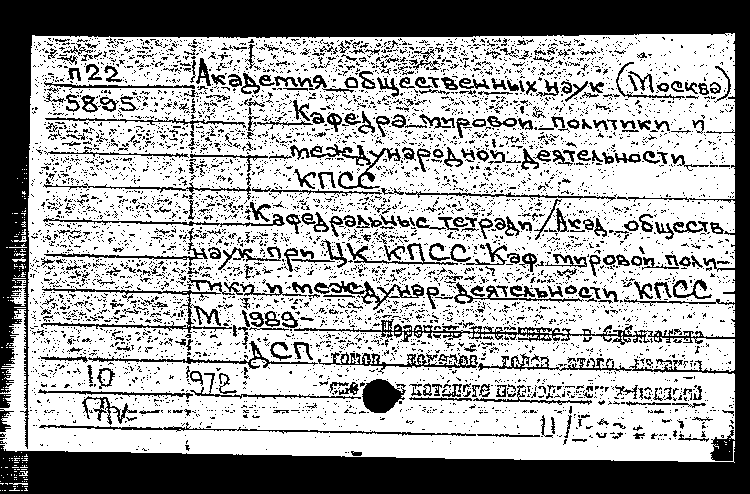 п22 Академия общественных наук (Москва)
5895 Кафедра мировой политики и
международной деятельности
КПСС
Кафедральные тетради / Акад. обществ.
наук при ЦК КПСС. Каф. мировой поли-
тики и междунар деятельности КПСС.
М., 1989-
Перечень имеющихся в библиотеке
ДСП. томов, номеров, годов этого издания
10 972 в каталоге периодическ. изданий
11/